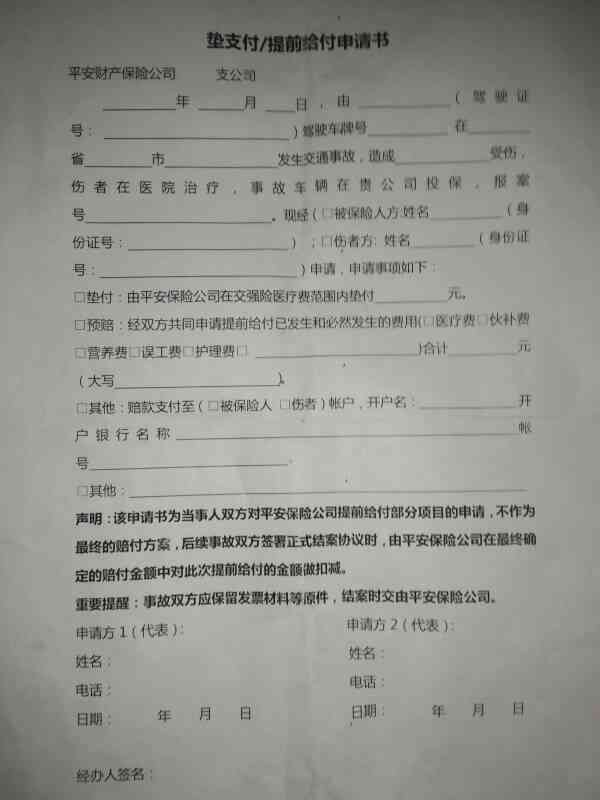 垫支付/提前给付申请书
平安财产保险公司 支公司
________年______月____日，由__________（驾驶证
号：____________________）驾驶车牌号__________在_______
省________市____________发生交通事故，造成__________受伤，
伤者在医院治疗，事故车辆在贵公司投保，报案
号____________________。现经（□被保险人方:姓名________（身
份证号：________________）；□伤者方: 姓名_______（身份证
号：____________________）申请，申请事项如下：
□垫付：由平安保险公司在交强险医疗费范围内垫付________元。
□预赔：经双方共同申请提前给付已发生和必然发生的费用(□医疗费□伙补费
□营养费□误工费□护理费□ ________________)合计________元
（大写__________________）。
□其他：赔款支付至（□被保险人 □伤者）帐户，开户名：__________开
户银行名称________________________________________帐
号______________________
□其他：________________________________________
声明：该申请书为当事人双方对平安保险公司提前给付部分项目的申请，不作为
最终的赔付方案，后续事故双方签署正式结案协议时，由平安保险公司在最终确
定的赔付金额中对此次提前给付的金额做扣减。
重要提醒：事故双方应保留发票材料等原件，结案时交由平安保险公司。
申请方1（代表）: 申请方2（代表）:
姓名： 姓名：
电话： 电话：
日期： 年 月 日 日期： 年 月 日
经办人签名：